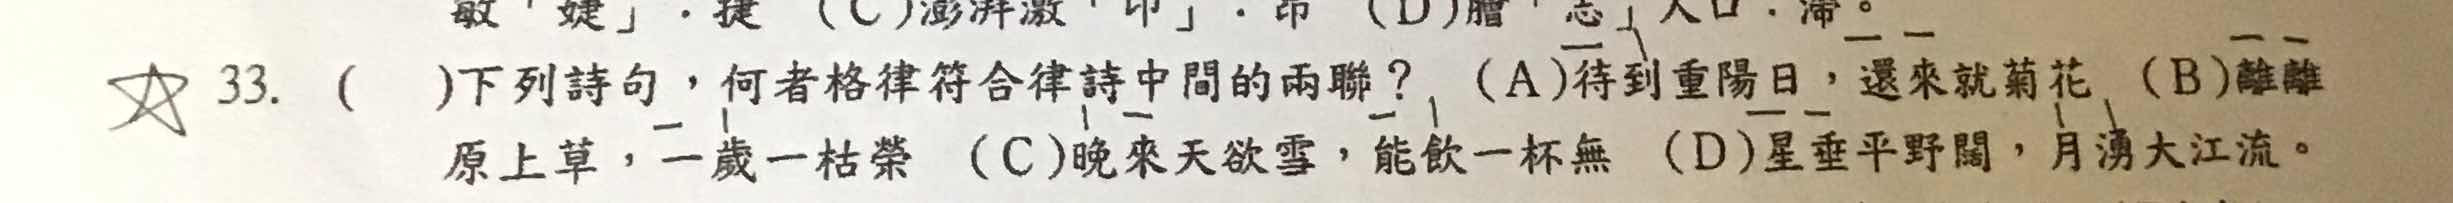 敏「婕」．捷　(C)澎湃激「卬」．昂　(D)膽「志」人口．滯。
33. (　　)下列詩句，何者格律符合律詩中間的兩聯？　(A)待到重陽日，還來就菊花　(B)離離
原上草，一歲一枯榮　(C)晚來天欲雪，能飲一杯無　(D)星垂平野闊，月湧大江流。